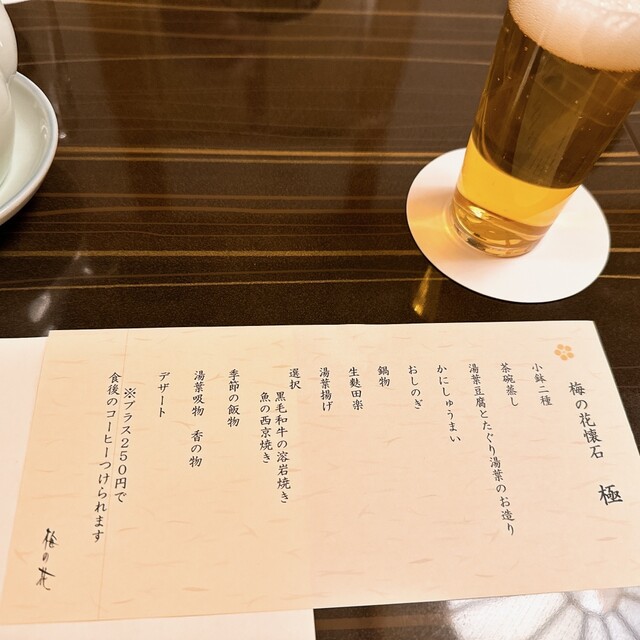 梅の花懐石　極
小鉢二種
茶碗蒸し
湯葉豆腐とたぐり湯葉のお造り
かにしゅうまい
おしのぎ
鍋物
生麩田楽
湯葉揚げ
選択
黒毛和牛の溶岩焼き
魚の西京焼き
季節の飯物
湯葉吸物　香の物
デザート
※プラス250円で
食後のコーヒーつけられます
梅の花